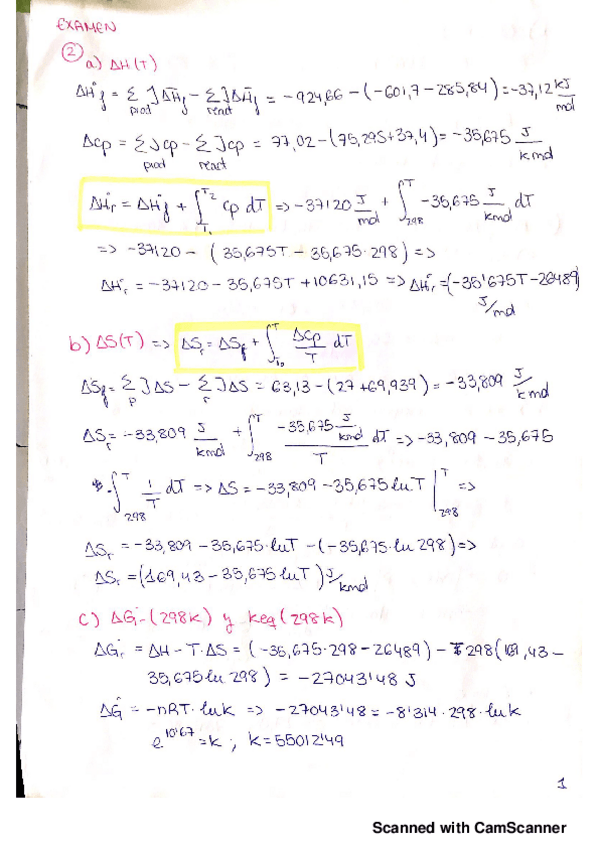 EXAMEN
② a) ΔH(T)
ΔH°f = Σ prod ƷΔH̄f − Σ react ƷΔH̄f = −924,66 − (−601,7 − 285,84) = −37,12 kJ/mol
Δcp = Σ prod Ʒcp − Σ react Ʒcp = 77,02 − (75,295 + 37,4) = −35,675 J/kmol
ΔH°r = ΔH°f + ∫T1 T2 cp dT => −37120 J/mol + ∫298 T −35,675 J/kmol dT
=> −37120 − (35,675T − 35,675·298) =>
ΔH°r = −37120 − 35,675T + 10631,15 => ΔH°r = (−35'675T − 26489) J/mol
b) ΔS(T) => ΔSr = ΔSf + ∫To T Δcp/T dT
ΔSf = Σ P ƷΔS − Σ r ƷΔS = 63,13 − (27 + 69,939) = −33,809 J/kmol
ΔSr = −33,809 J/kmol + ∫298 T −35,675 J/kmol / T dT => −33,809 − 35,675
· ∫298 T 1/T dT => ΔS = −33,809 − 35,675 ln T |298 T =>
ΔSr = −33,809 − 35,675·lnT − (−35,675·ln 298) =>
ΔSr = (169,43 − 35,675 lnT) J/kmol
c) ΔG°r (298k) y keq (298k)
ΔG°r = ΔH − T·ΔS = (−35,675·298 − 26489) − 298(169,43 −
35,675 ln 298) = −27043'48 J
ΔG° = −nRT·lnk => −27043'48 = −8'314·298·lnk
e^10'67 = k ; k = 55012'49
1
Scanned with CamScanner